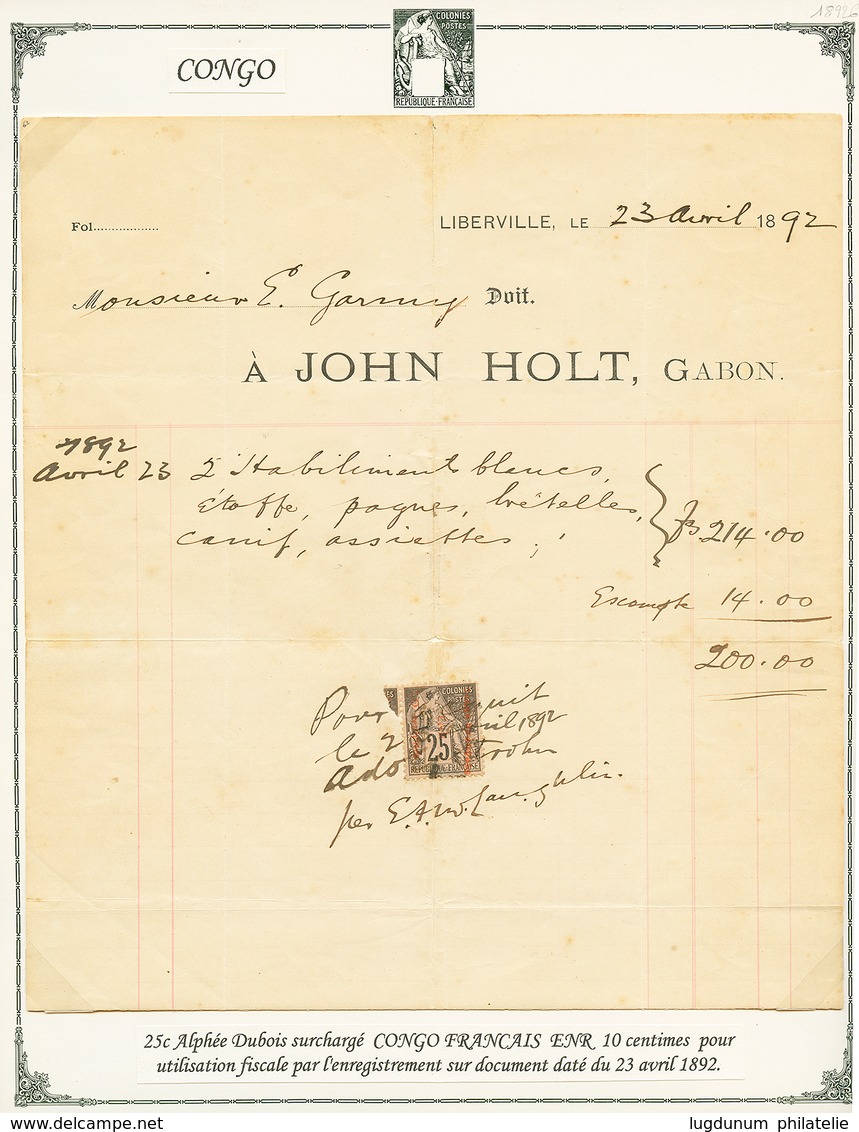 1892
CONGO
COLONIES
POSTES
REPUBLIQUE-FRANÇAISE
Fol..................
LIBERVILLE, LE 23 Avril 1892
Monsieur E. Doit.
À JOHN HOLT, GABON.
1892
Avril 23 2 Habiliments blancs,
étoffe, pagnes, brételles,
canif, assiettes; fs. 214.00
Escompte 14.00
200.00
Pour quit
le 2 ril 1892
Ado trohn
per E.A. McLaughlin.
ES
COLONIES
POSTES
25
REPUBLIQUE-FRANÇAISE
25c Alphée Dubois surchargé CONGO FRANCAIS ENR 10 centimes pour
utilisation fiscale par l'enregistrement sur document daté du 23 avril 1892.
www.delcampe.net
lugdunum philatelie